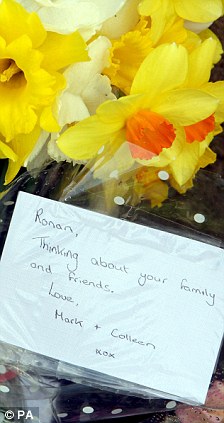 Ronan,
Thinking about your family
and friends.
Love,
Mark + Colleen
xox
© PA